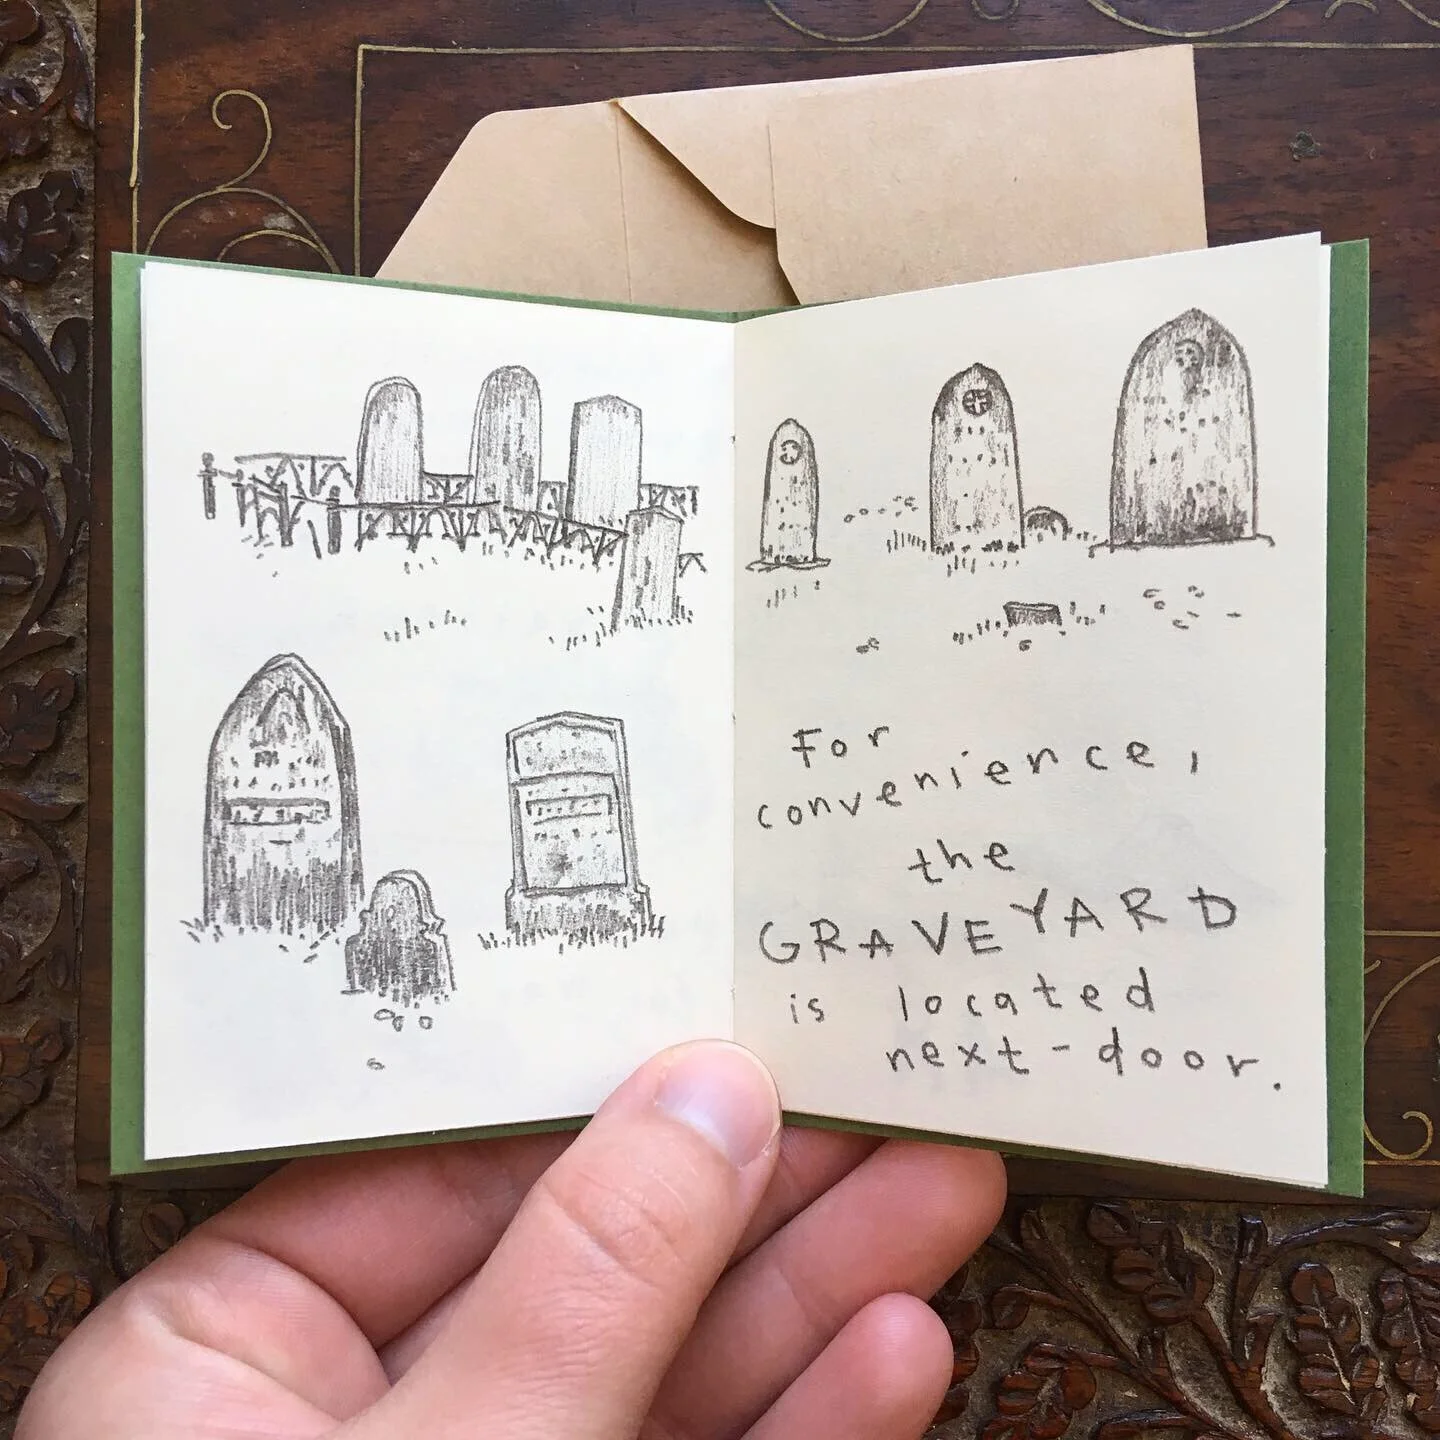 For
convenience,
the
GRAVEYARD
is located
next-door.